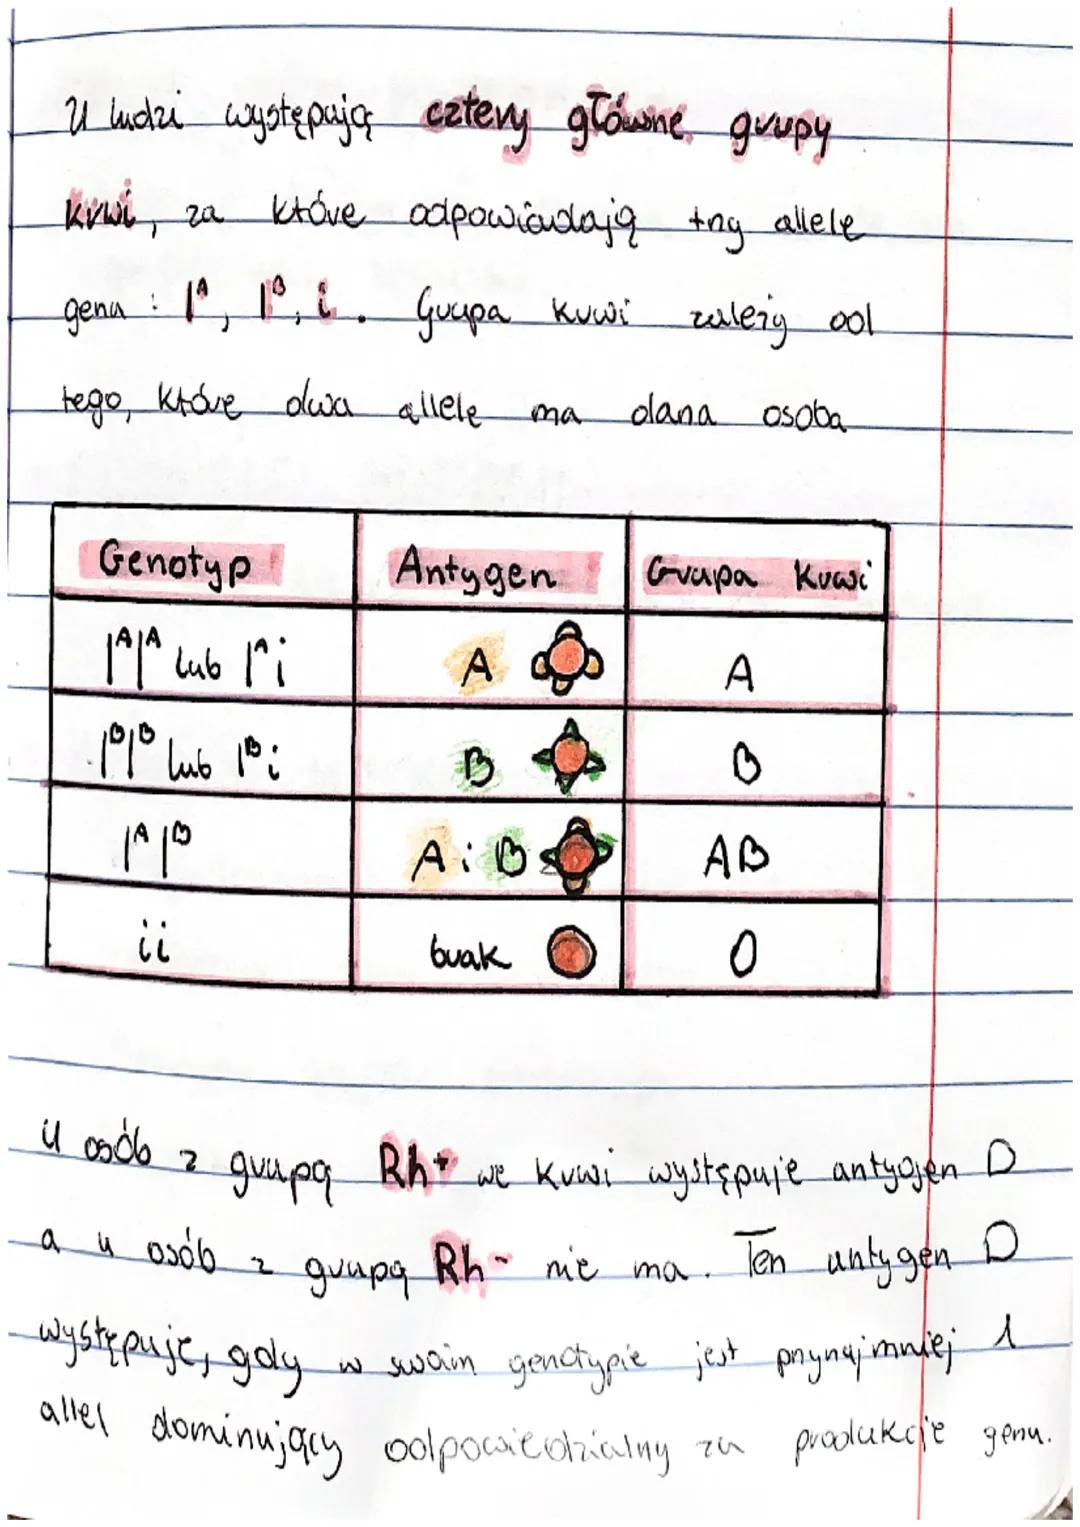 U ludzi występują cztery główne grupy
krwi, za które odpowiadają trzy allele
genu : Iᴬ, Iᴮ, i. Grupa krwi zależy od
tego, które dwa allele ma dana osoba
Genotyp Antygen Grupa krwi
IᴬIᴬ lub Iᴬi A A
IᴮIᴮ lub Iᴮi B B
IᴬIᴮ A i B AB
ii brak 0
U osób z grupą Rh+ we krwi występuje antygen D
a u osób z grupą Rh- nie ma. Ten antygen D
występuje, gdy w swoim genotypie jest przynajmniej 1
allel dominujący odpowiedzialny za produkcje genu.